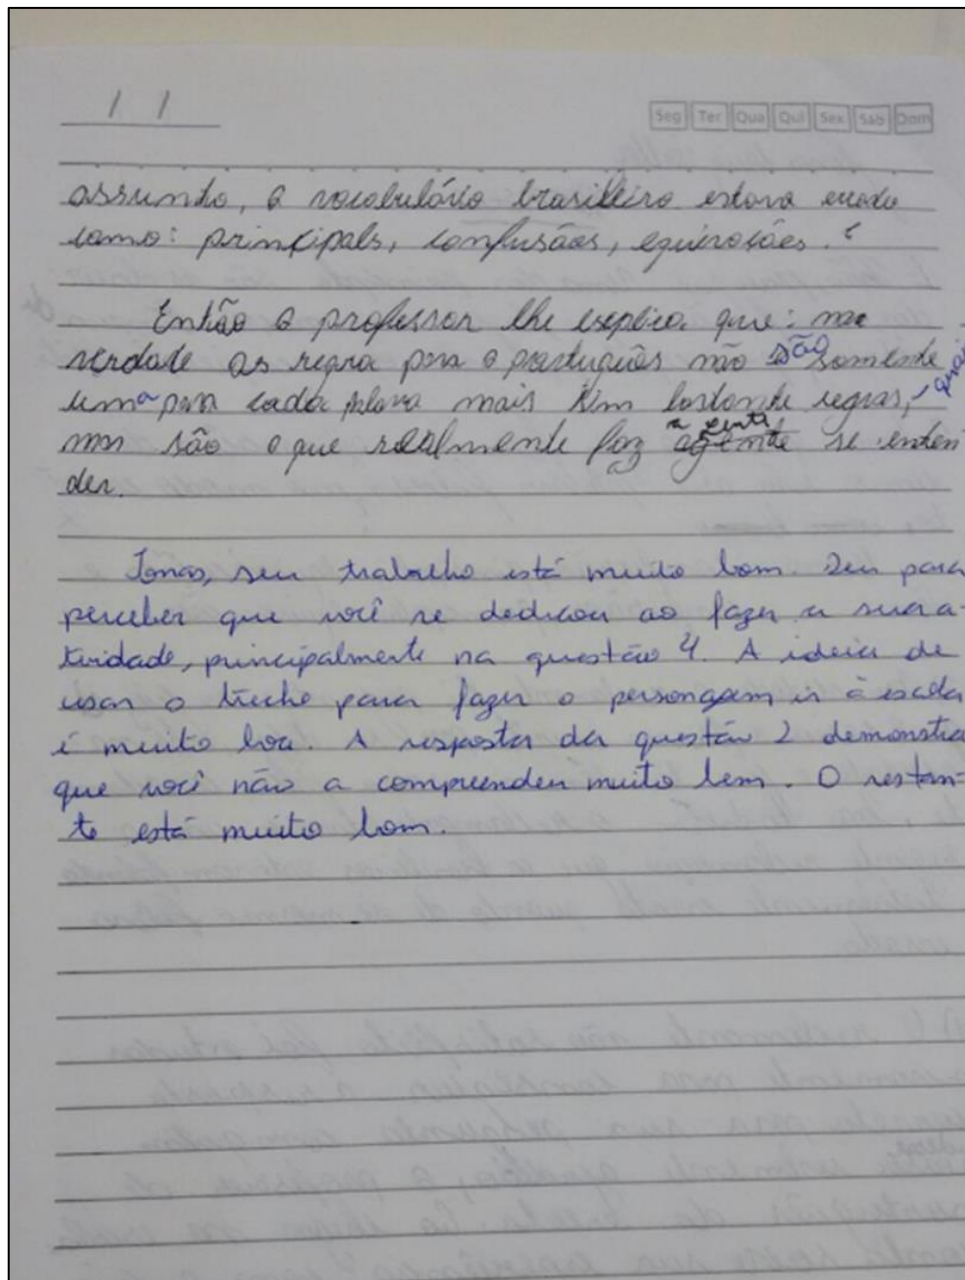 / /
Seg Ter Qua Qui Sex Sáb Dom
assunto, o vocabulário brasileiro estava errado
como: principals, confusães, equivocães.
Então o professor lhe explica que: na
verdade as regra para o português não são somente
uma para cada palavra mais tim bastante regras,
mas são o que realmente faz agente a gente se enten
der.
Jonas, seu trabalho está muito bom. Deu para
perceber que você se dedicou ao fazer a sua a-
tividade, principalmente na questão 4. A ideia de
usar o trecho para fazer o personagem ir à escola
é muito boa. A resposta da questão 2 demonstra
que você não a compreendeu muito bem. O restan-
te está muito bom.